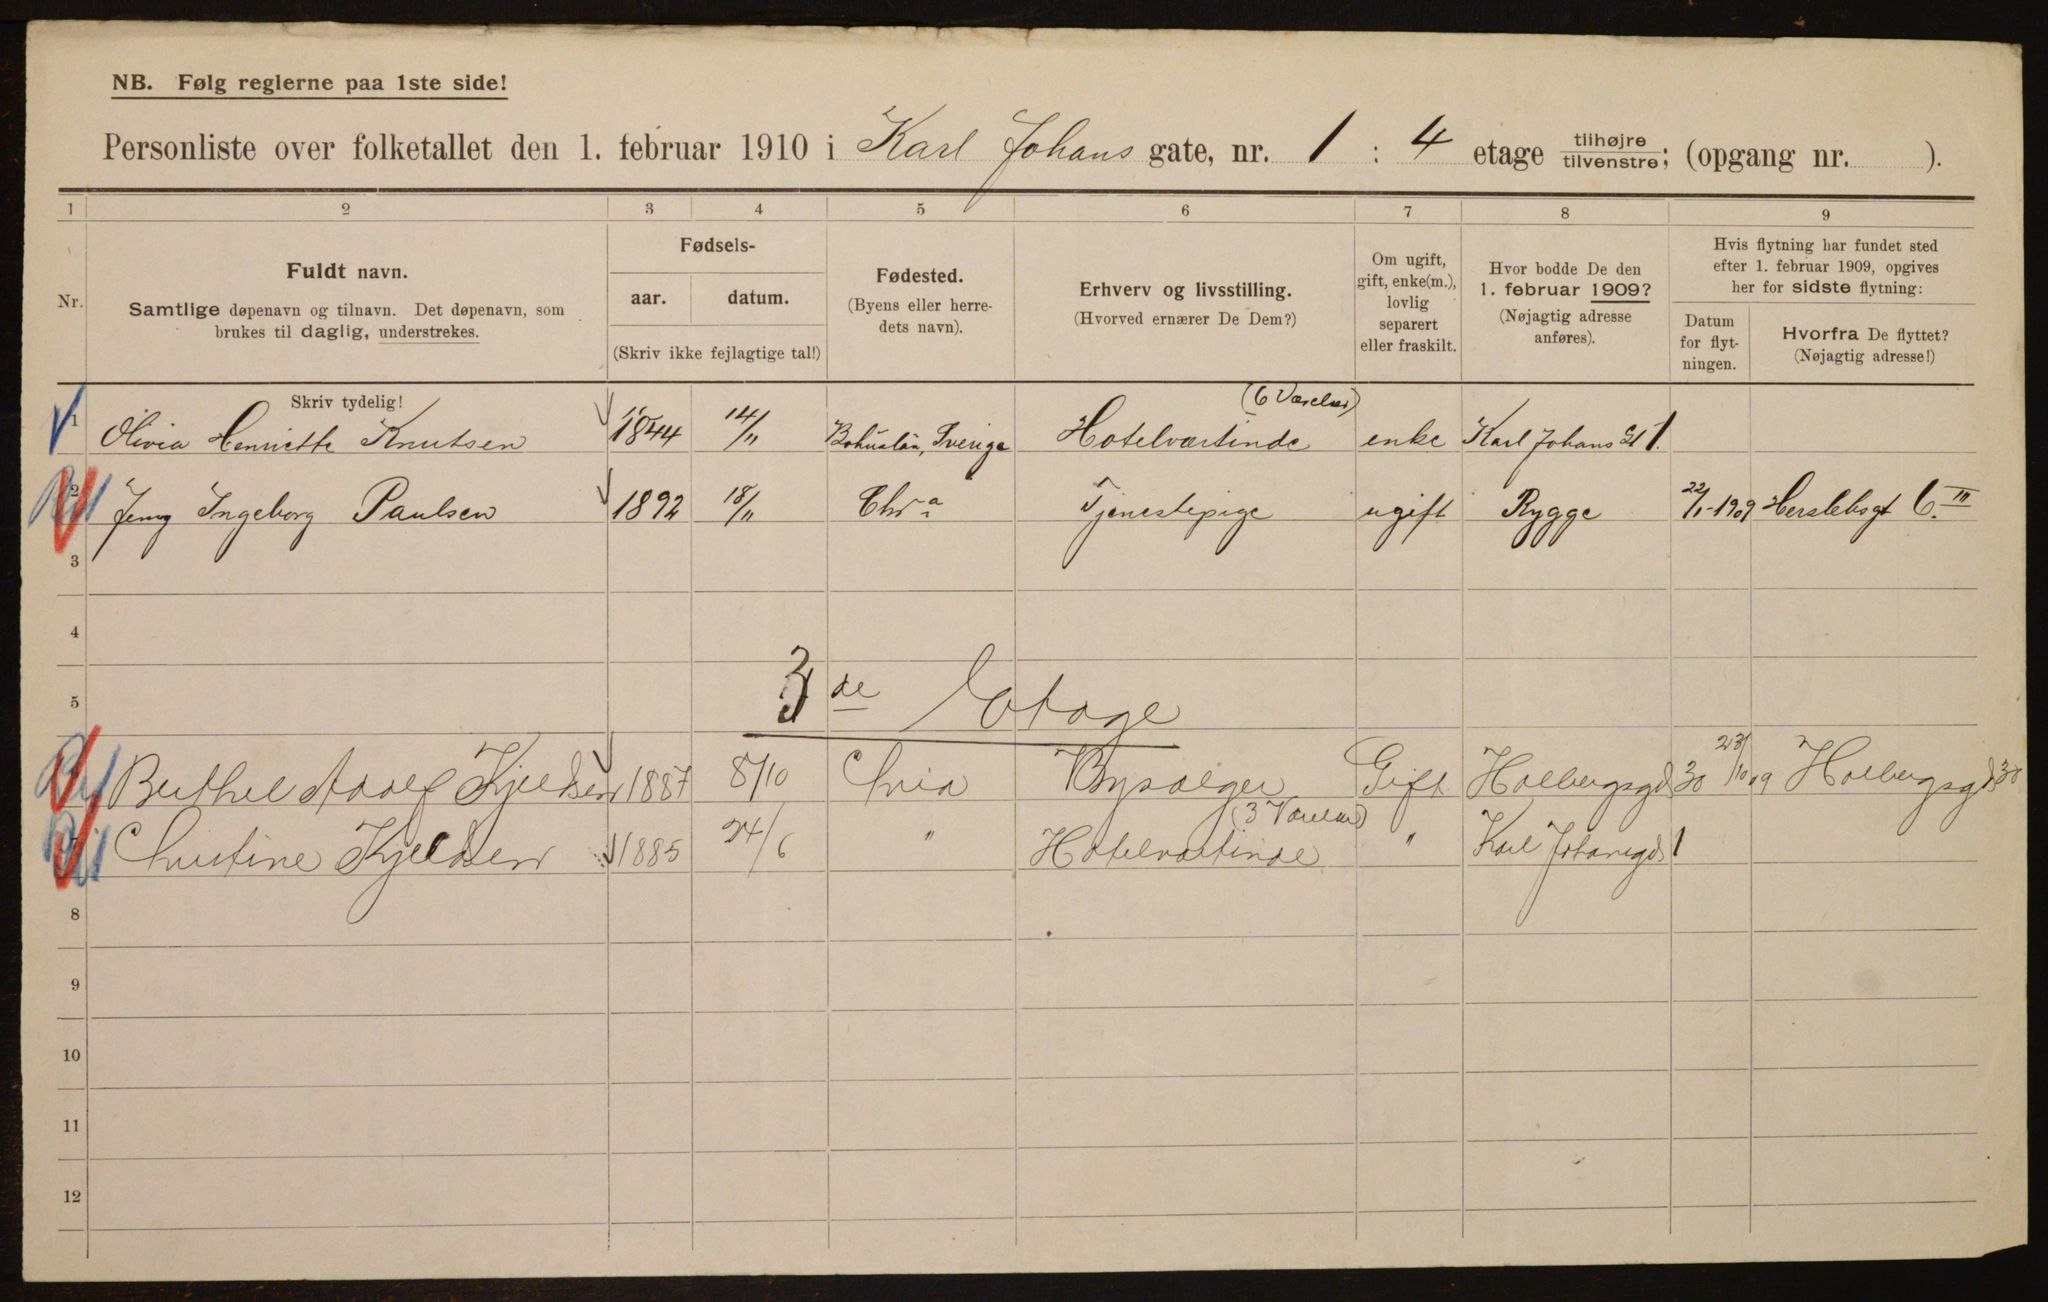 NB. Følg reglerne paa 1ste side!
Personliste over folketallet den 1. februar 1910 i Karl Johans gate, nr. 1 : 4 etage tilhøjre/tilvenstre; (opgang nr. ).
1 2 3 4 5 6 7 8 9
Nr.
Fuldt navn.
Samtlige døpenavn og tilnavn. Det døpenavn, som
brukes til daglig, understrekes.
Skriv tydelig!
Fødsels-
aar. datum.
(Skriv ikke fejlagtige tal!)
Fødested.
(Byens eller herre-
dets navn).
Erhverv og livsstilling.
(Hvorved ernærer De Dem?)
Om ugift,
gift, enke(m.),
lovlig
separert
eller fraskilt.
Hvor bodde De den
1. februar 1909?
(Nøjagtig adresse
anføres).
Hvis flytning har fundet sted
efter 1. februar 1909, opgives
her for sidste flytning:
Datum
for flyt-
ningen.
Hvorfra De flyttet?
(Nøjagtig adresse!)
(6 Værelser)
1 Olivia Henriette Knutsen 1844 14/11 Bohuslän, Sverige Hotelværtinde enke Karl Johans Gt 1.
2 Jenny Ingeborg Paulsen 1892 18/11 Chr.a Tjenestepige ugift Rygge 22/1-1909 Herslebsgt 6. III
3
4
3de Etage
5
Berthel Adolf Kjeldsen 1887 8/10 Chria Bysælger Gift Holbergsgd 30 23/10 09 Holbergsgd 30
(3 Værelser)
Christine Kjeldsen 1885 24/6 " Hotelværtinde " Karl Johansgd 1
8
9
10
11
12